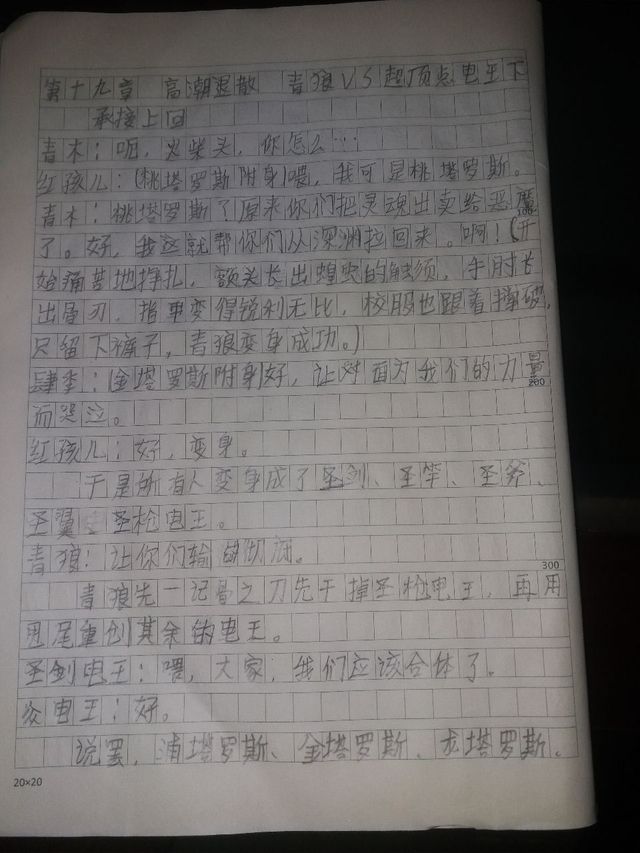 第十九章 高潮退散 青狼VS超顶点电王下
承接上回
青木：呃，火柴头，你怎么…
红孩儿：(桃塔罗斯附身)喂，我可是桃塔罗斯。
青木：桃塔罗斯？原来你们把灵魂出卖给恶魔
了。好，我这就帮你们从深渊拉回来。啊！(开
始痛苦地挣扎，额头长出蝗虫的触须，手肘长
出骨刃，指甲变得锐利无比，校服也跟着撑破，
只留下裤子，青狼变身成功。)
肆季：(金塔罗斯附身)好，让对面为我们的力量
200
而哭泣。
红孩儿：好，变身。
于是所有人变身成了圣剑、圣竿、圣斧、
圣翼、圣枪电王。
青狼：让你们输的彻底。
300
青狼先一记骨之刀先干掉圣枪电王，再用
甩尾重创其余的电王。
圣剑电王：喂，大家，我们应该合体了。
众电王：好。
说罢，浦塔罗斯、金塔罗斯、龙塔罗斯、
20×20